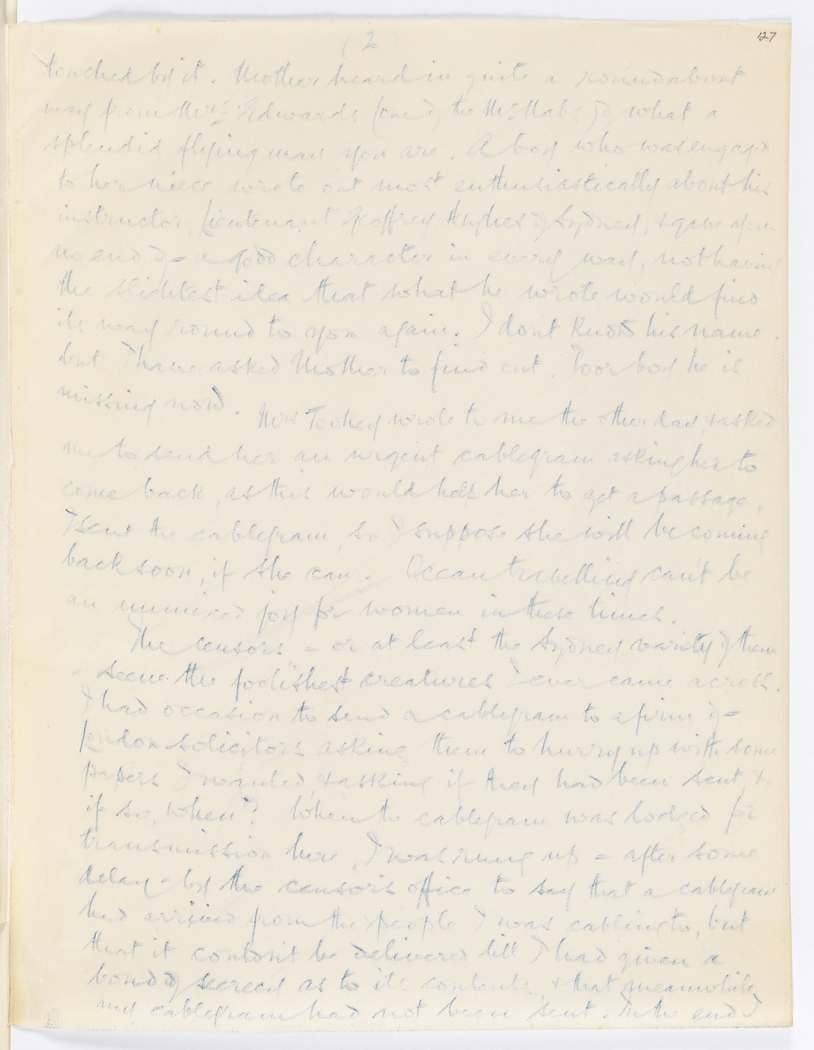 (2)
127
touched by it. Mother heard in quite a roundabout
way from Mrs Edwards (one of the ) of what a
splendid flying man you are. A boy who was engaged
to her niece wrote out most enthusiastically about his
instructor, Lieutenant Geoffrey Hughes of Sydney, & gave you
no end of a good character in every way, not having
the slightest idea that what he wrote would find
its way round to you again. I dont know his name
but I have asked Mother to find out. Poor boy he is
missing now.
Mrs Toohey wrote to me the other day & asked
me to send her an urgent cablegram asking her to
come back, as this would help her to get a passage.
I sent the cablegram, so I suppose she will be coming
back soon, if she can. Ocean travelling cant be
an unmixed joy for women in these times.
The censors - or at least the Sydney variety of them
- seem the foolishest creatures I ever came across.
I had occasion to send a cablegram to a firm of
London solicitors asking them to hurry up with some
papers I wanted, & asking if they had been sent, &
if so, when? When the cablegram was lodged for
transmission here, I was rung up - after some
delay - by the censor's office to say that a cablegram
had arrived from the people I was cabling to, but
that it couldn't be delivered till I had given a
bond of secrecy as to its contents, & that meanwhile
my cablegram had not been sent. In the end I